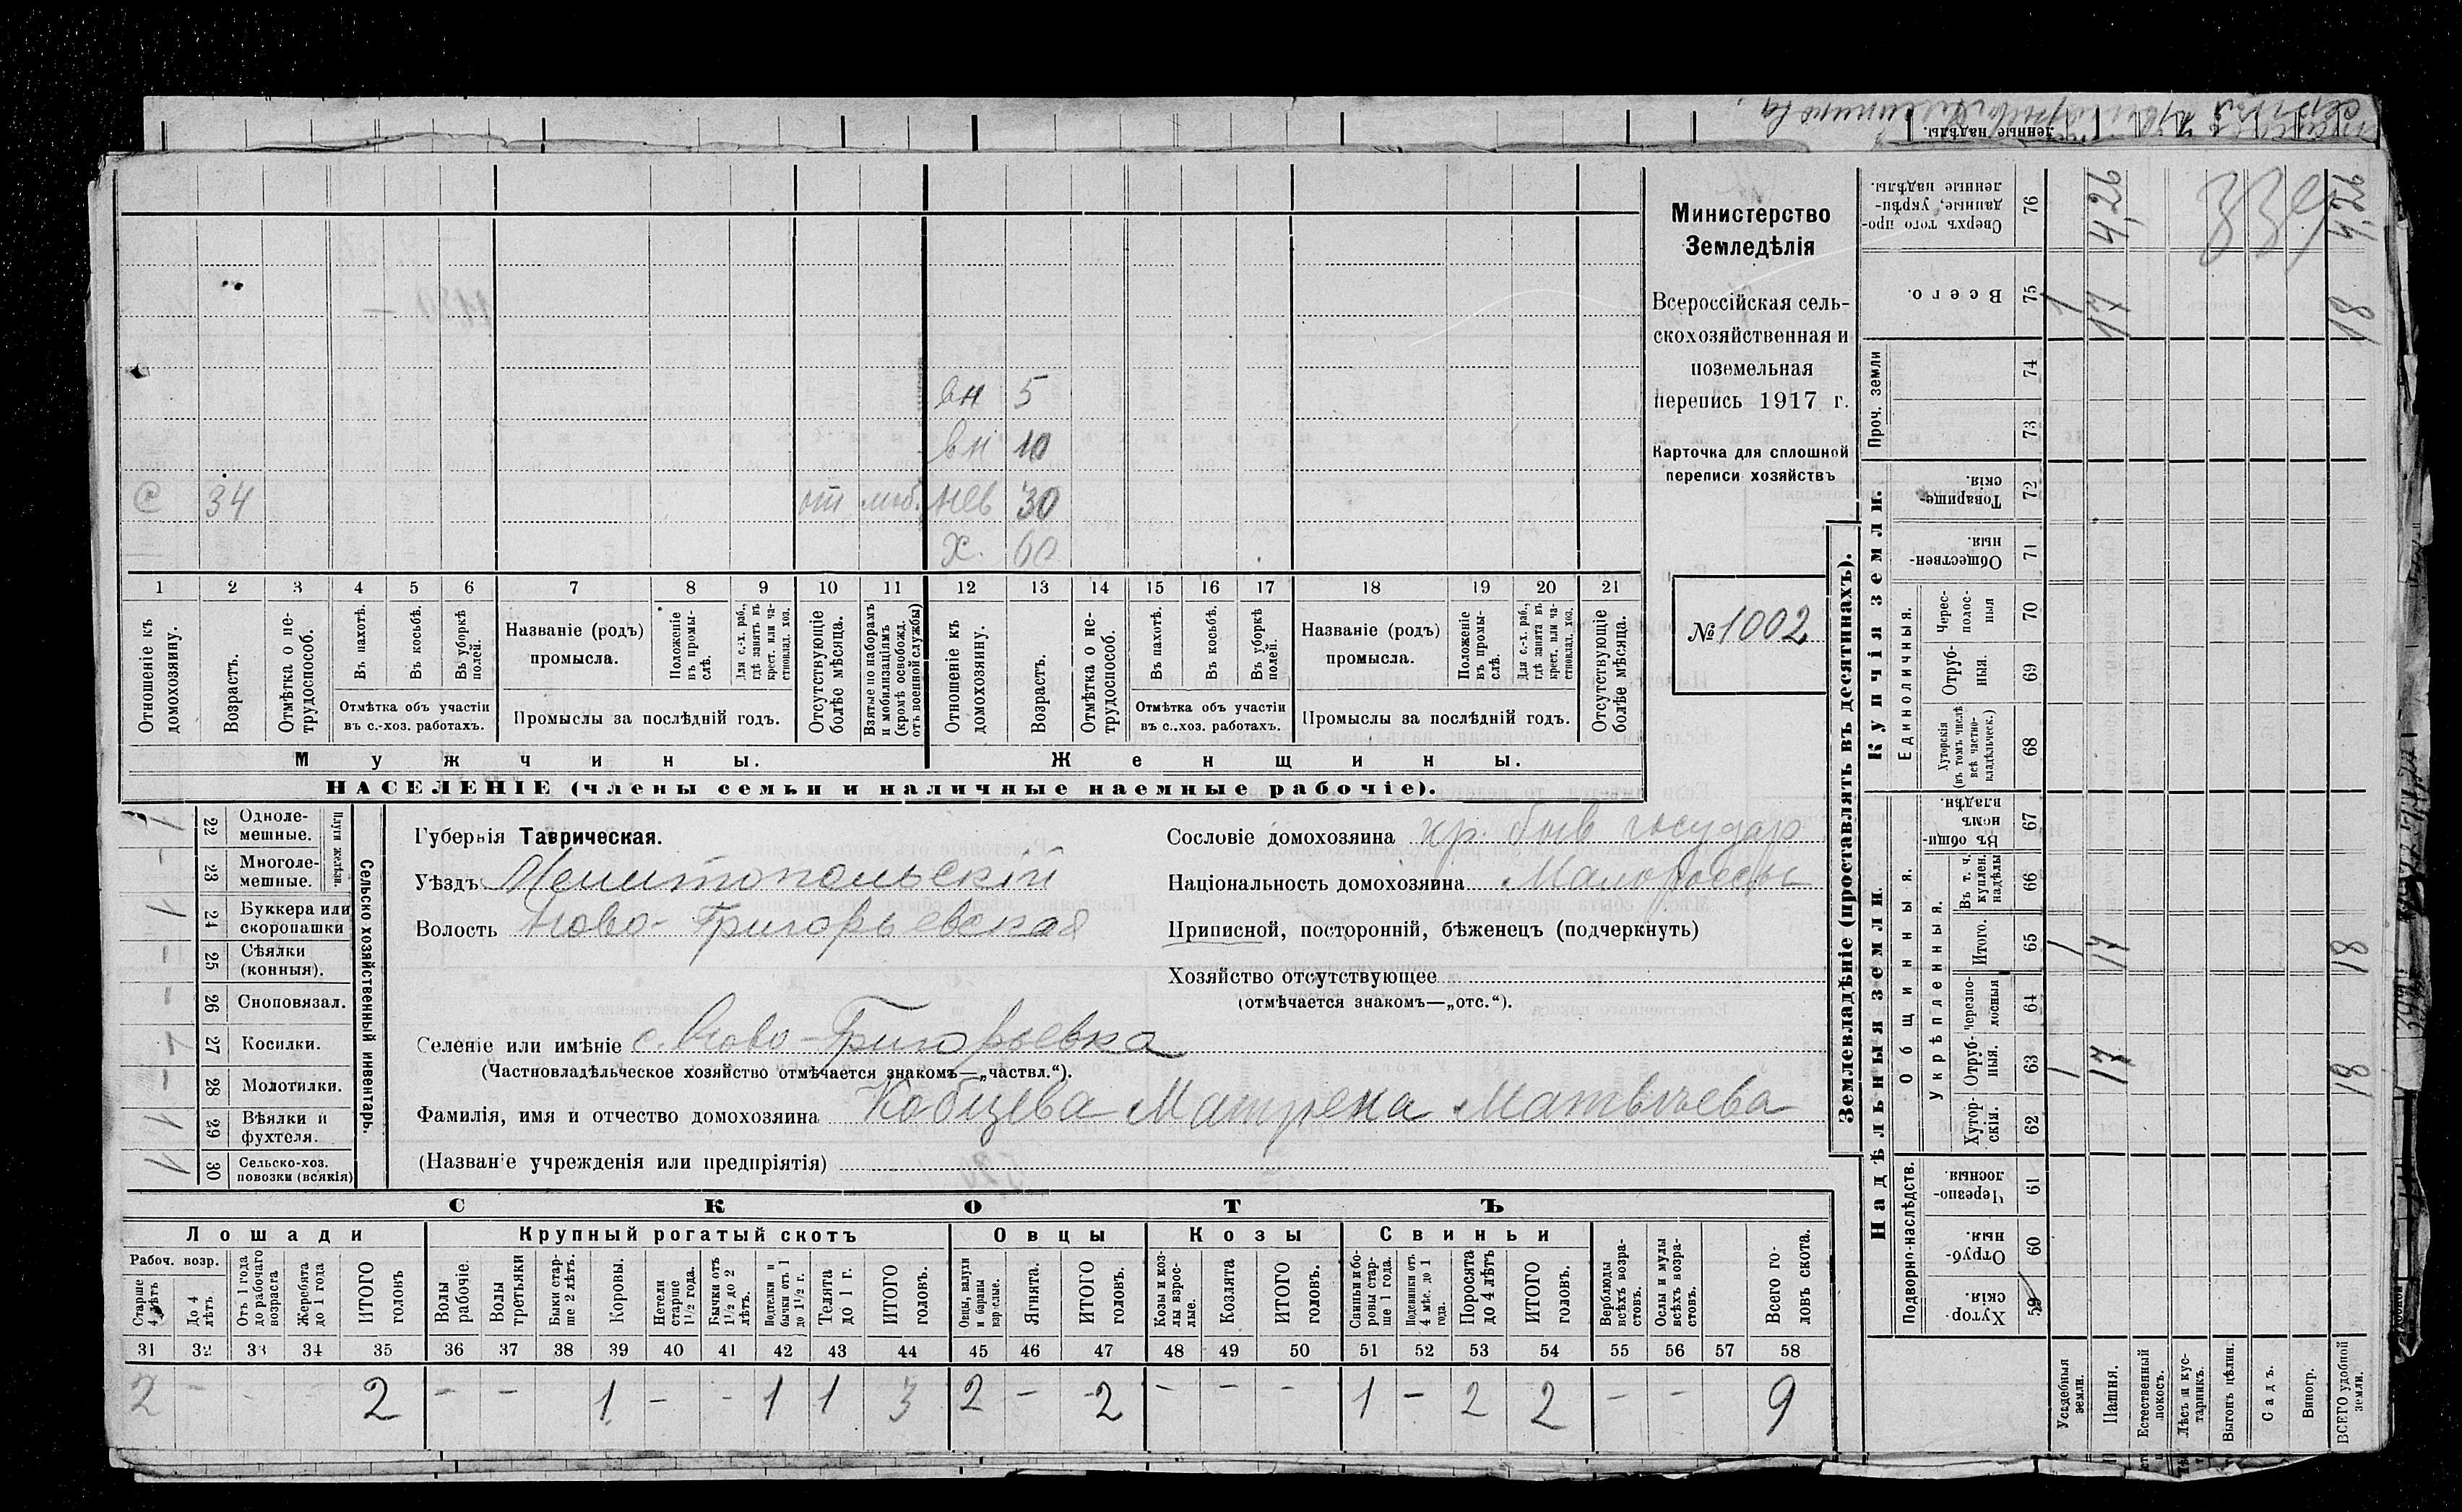 Министерство
Земледѣлія
Всероссійская сель-
скохозяйственная и
поземельная
перепись 1917 г.
Карточка для сплошной
переписи хозяйствъ
№ 1002
вн 5
вн 10
С 34 от моб. нев 30
х. 60
1 2 3 4 5 6 7 8 9 10 11 12 13 14 15 16 17 18 19 20 21
Отношеніе къ домохозяину.
Возрастъ.
Отмѣтка о не-трудоспособ.
Въ пахотѣ.
Въ косьбѣ.
Въ уборкѣ полей.
Отмѣтка объ участіи въ с.-хоз. работахъ.
Названіе (родъ) промысла.
Положеніе въ промы-слѣ.
Для с.-х. раб., гдѣ занятъ въ крест. или ча-стновлад. хоз.
Промыслы за послѣдній годъ.
Отсутствующіе болѣе мѣсяца.
Взятые по наборамъ и мобилизаціямъ (кромѣ освобожд. отъ военной службы)
Отношеніе къ домохозяину.
Возрастъ.
Отмѣтка о не-трудоспособ.
Въ пахотѣ.
Въ косьбѣ.
Въ уборкѣ полей.
Отмѣтка объ участіи въ с..хоз. работахъ.
Названіе (родъ) промысла.
Положеніе въ промы-слѣ.
Для с.-х. раб., гдѣ занята въ крест. или ча-стновлад. хоз.
Промыслы за послѣдній годъ.
Отсутствующіе болѣе мѣсяца.
Мужчины. Женщины.
НАСЕЛЕНІЕ (члены семьи и наличные наемные рабочіе).
Сельско хозяйственный инвентарь.
Плуги желѣзн.
22 Одноле-мешные. 1
23 Многоле-мешные. -
24 Буккера или скоропашки 1
25 Сѣялки (конныя). -
26 Сноповязал. -
27 Косилки.
28 Молотилки. -
29 Вѣялки и фухтеля. 1
30 Сельско-хоз. повозки (всякія)
Губернія Таврическая.
Уѣздъ Мелитопольскій
Волость Ново-Григорьевская
Селеніе или имѣніе с. Ново-Григорьевка
(Частновладѣльческое хозяйство отмѣчается знакомъ—„частвл.“).
Фамилія, имя и отчество домохозяина Кобцева Матрена Матвѣева
(Названіе учрежденія или предпріятія)
Сословіе домохозяина кр. быв государ
Національность домохозяина Малороссы
Приписной, посторонній, бѣженецъ (подчеркнуть)
Хозяйство отсутствующее
(отмѣчается знакомъ—„отс.“).
СКОТЪ
Лошади Крупный рогатый скотъ Овцы Козы Свиньи
Рабоч. возр.
Старше 4 лѣтъ
До 4 лѣтъ
Отъ 1 года до рабочаго возраста
Жеребята до 1 года
ИТОГО головъ
Волы рабочіе.
Волы третьяки
Быки стар-ше 2 лѣтъ.
Коровы.
Нетели старше 1½ года.
Бычки отъ 1½ до 2 лѣтъ.
Подтелки и бычки отъ 1 до 1½ г.
Телята до 1 г.
ИТОГО головъ.
Овцы, валухи и бараны взрослые.
Ягнята.
ИТОГО головъ.
Козы и коз-лы взрос-лые.
Козлята
ИТОГО головъ.
Свиньи и бо-ровы стар-ше 1 года.
Подсвинки отъ 4 мѣс. до 1 года.
Поросята до 4 лѣтъ
ИТОГО головъ.
Верблюды всѣхъ возра-стовъ.
Ослы и мулы всѣхъ возра-стовъ.
Всего го-ловъ скота.
31 32 33 34 35 36 37 38 39 40 41 42 43 44 45 46 47 48 49 50 51 52 53 54 55 56 57 58
2 - - 2 - - 1 - - 1 1 3 2 - 2 - - - 1 - 2 2 - - 9
Землевладѣніе (проставлять въ десятинахъ).
Надѣльныя земли. Купчія земли.
Подворно-наслѣдств.
Общинныя.
Укрѣпленныя.
Единоличныя.
Проч. земли
Хутор-скія. 59
Отруб-ныя. 60
Черезпо-лосныя 61
Хутор-скія. 62
Отруб-ныя. 63
Черезпо-лосныя 64
Итого. 65
Въ т. ч. куплен. надѣлы 66
Въ общи-номъ владѣн. 67
Хуторскія (въ томъ числѣ всѣ частно-владѣльческ.) 68
Отруб-ныя. 69
Черес-полос-ныя 70
Обществен-ныя. 71
Товарище-скія. 72
73
74
Всего. 75
Сверхъ того про-данные, укрѣп-ленные надѣлы. 76
Усадебныя земли. 1 1 1
Пашня. 17 17 17 4,26
Естественный покосъ.
Лѣсъ и кус-тарникъ.
Выгонъ цѣлин.
Садъ.
Виногр.
ВСЕГО удобной земли. 18 18 18 4,26
339
ленные надѣлы.